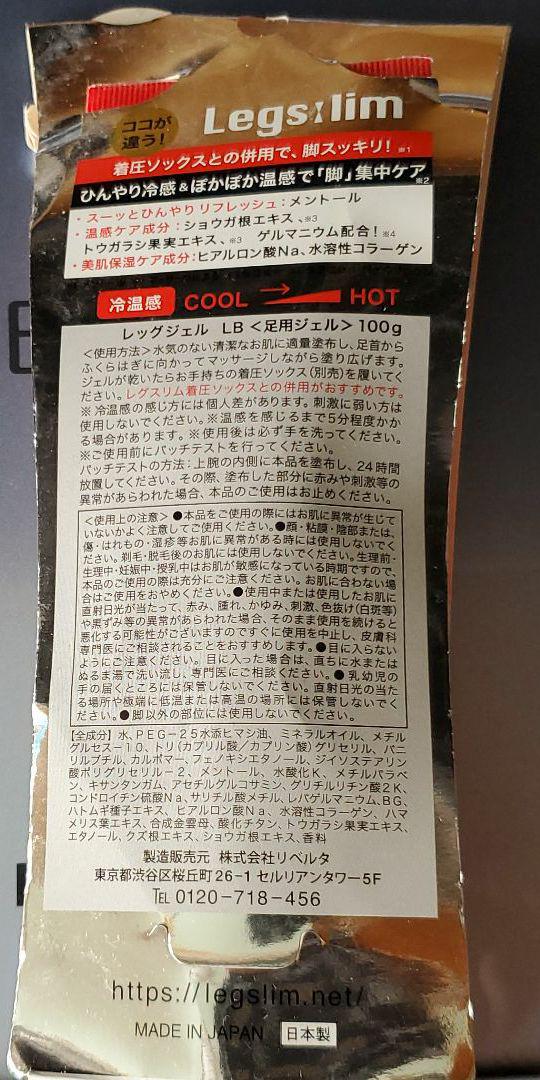 ココが
違う!
Legs:lim
着圧ソックスとの併用で、脚スッキリ! ※1
ひんやり冷感&ぽかぽか温感で「脚」集中ケア ※2
・スーッとひんやりリフレッシュ:メントール
・温感ケア成分:ショウガ根エキス、※3
トウガラシ果実エキス、※3 ゲルマニウム配合!※4
・美肌保湿ケア成分:ヒアルロン酸Na、水溶性コラーゲン
冷温感 COOL → HOT
レッグジェル LB <足用ジェル> 100g
<使用方法>水気のない清潔なお肌に適量塗布し、足首から
ふくらはぎに向かってマッサージしながら塗り広げます。
ジェルが乾いたらお手持ちの着圧ソックス(別売)を履いてく
ださい。レグスリム着圧ソックスとの併用がおすすめです。
※冷温感の感じ方には個人差があります。刺激に弱い方は
使用しないでください。※温感を感じるまで5分程度かか
る場合があります。※使用後は必ず手を洗ってください。
※ご使用前にパッチテストを行ってください。
パッチテストの方法:上腕の内側に本品を塗布し、24時間
放置してください。その際、塗布した部分に赤みや刺激等の
異常があらわれた場合、本品のご使用はお止めください。
<使用上の注意>●本品をご使用の際にはお肌に異常が生じて
いないかよく注意してご使用ください。●顔・粘膜・陰部または、
傷・はれもの・湿疹等お肌に異常がある時には使用しないでく
ださい。剃毛・脱毛後のお肌には使用しないでください。生理前・
生理中・妊娠中・授乳中はお肌が敏感になっている時期ですので、
本品のご使用の際は充分にご注意ください。お肌に合わない場
合はご使用をおやめください。●使用中または使用したお肌に
直射日光が当たって、赤み、腫れ、かゆみ、刺激、色抜け(白斑等)
や黒ずみ等の異常があらわれた場合、そのまま使用を続けると
悪化する可能性がございますのですぐに使用を中止し、皮膚科
専門医にご相談されることをおすすめします。●目に入らない
ようにご注意ください。目に入った場合は、直ちに水または
ぬるま湯で洗い流し、専門医にご相談ください。●乳幼児の
手の届くところには保管しないでください。直射日光の当た
る場所や極端に低温または高温の場所には保管しないでくだ
さい。●脚以外の部位には使用しないでください。
【全成分】水、PEG-25水添ヒマシ油、ミネラルオイル、メチル
グルセス-10、トリ(カプリル酸/カプリン酸)グリセリル、バニ
リルブチル、カルボマー、フェノキシエタノール、ジイソステアリン
酸ポリグリセリル-2、メントール、水酸化K、メチルパラベ
ン、キサンタンガム、アセチルグルコサミン、グリチルリチン酸2K、
コンドロイチン硫酸Na、サリチル酸メチル、レパゲルマニウム、BG、
ハトムギ種子エキス、ヒアルロン酸Na、水溶性コラーゲン、ハマ
メリス葉エキス、合成金雲母、酸化チタン、トウガラシ果実エキス、
エタノール、クズ根エキス、ショウガ根エキス、香料
製造販売元 株式会社リベルタ
東京都渋谷区桜丘町26-1 セルリアンタワー5F
TEL 0120-718-456
https://legslim.net/
MADE IN JAPAN 日本製